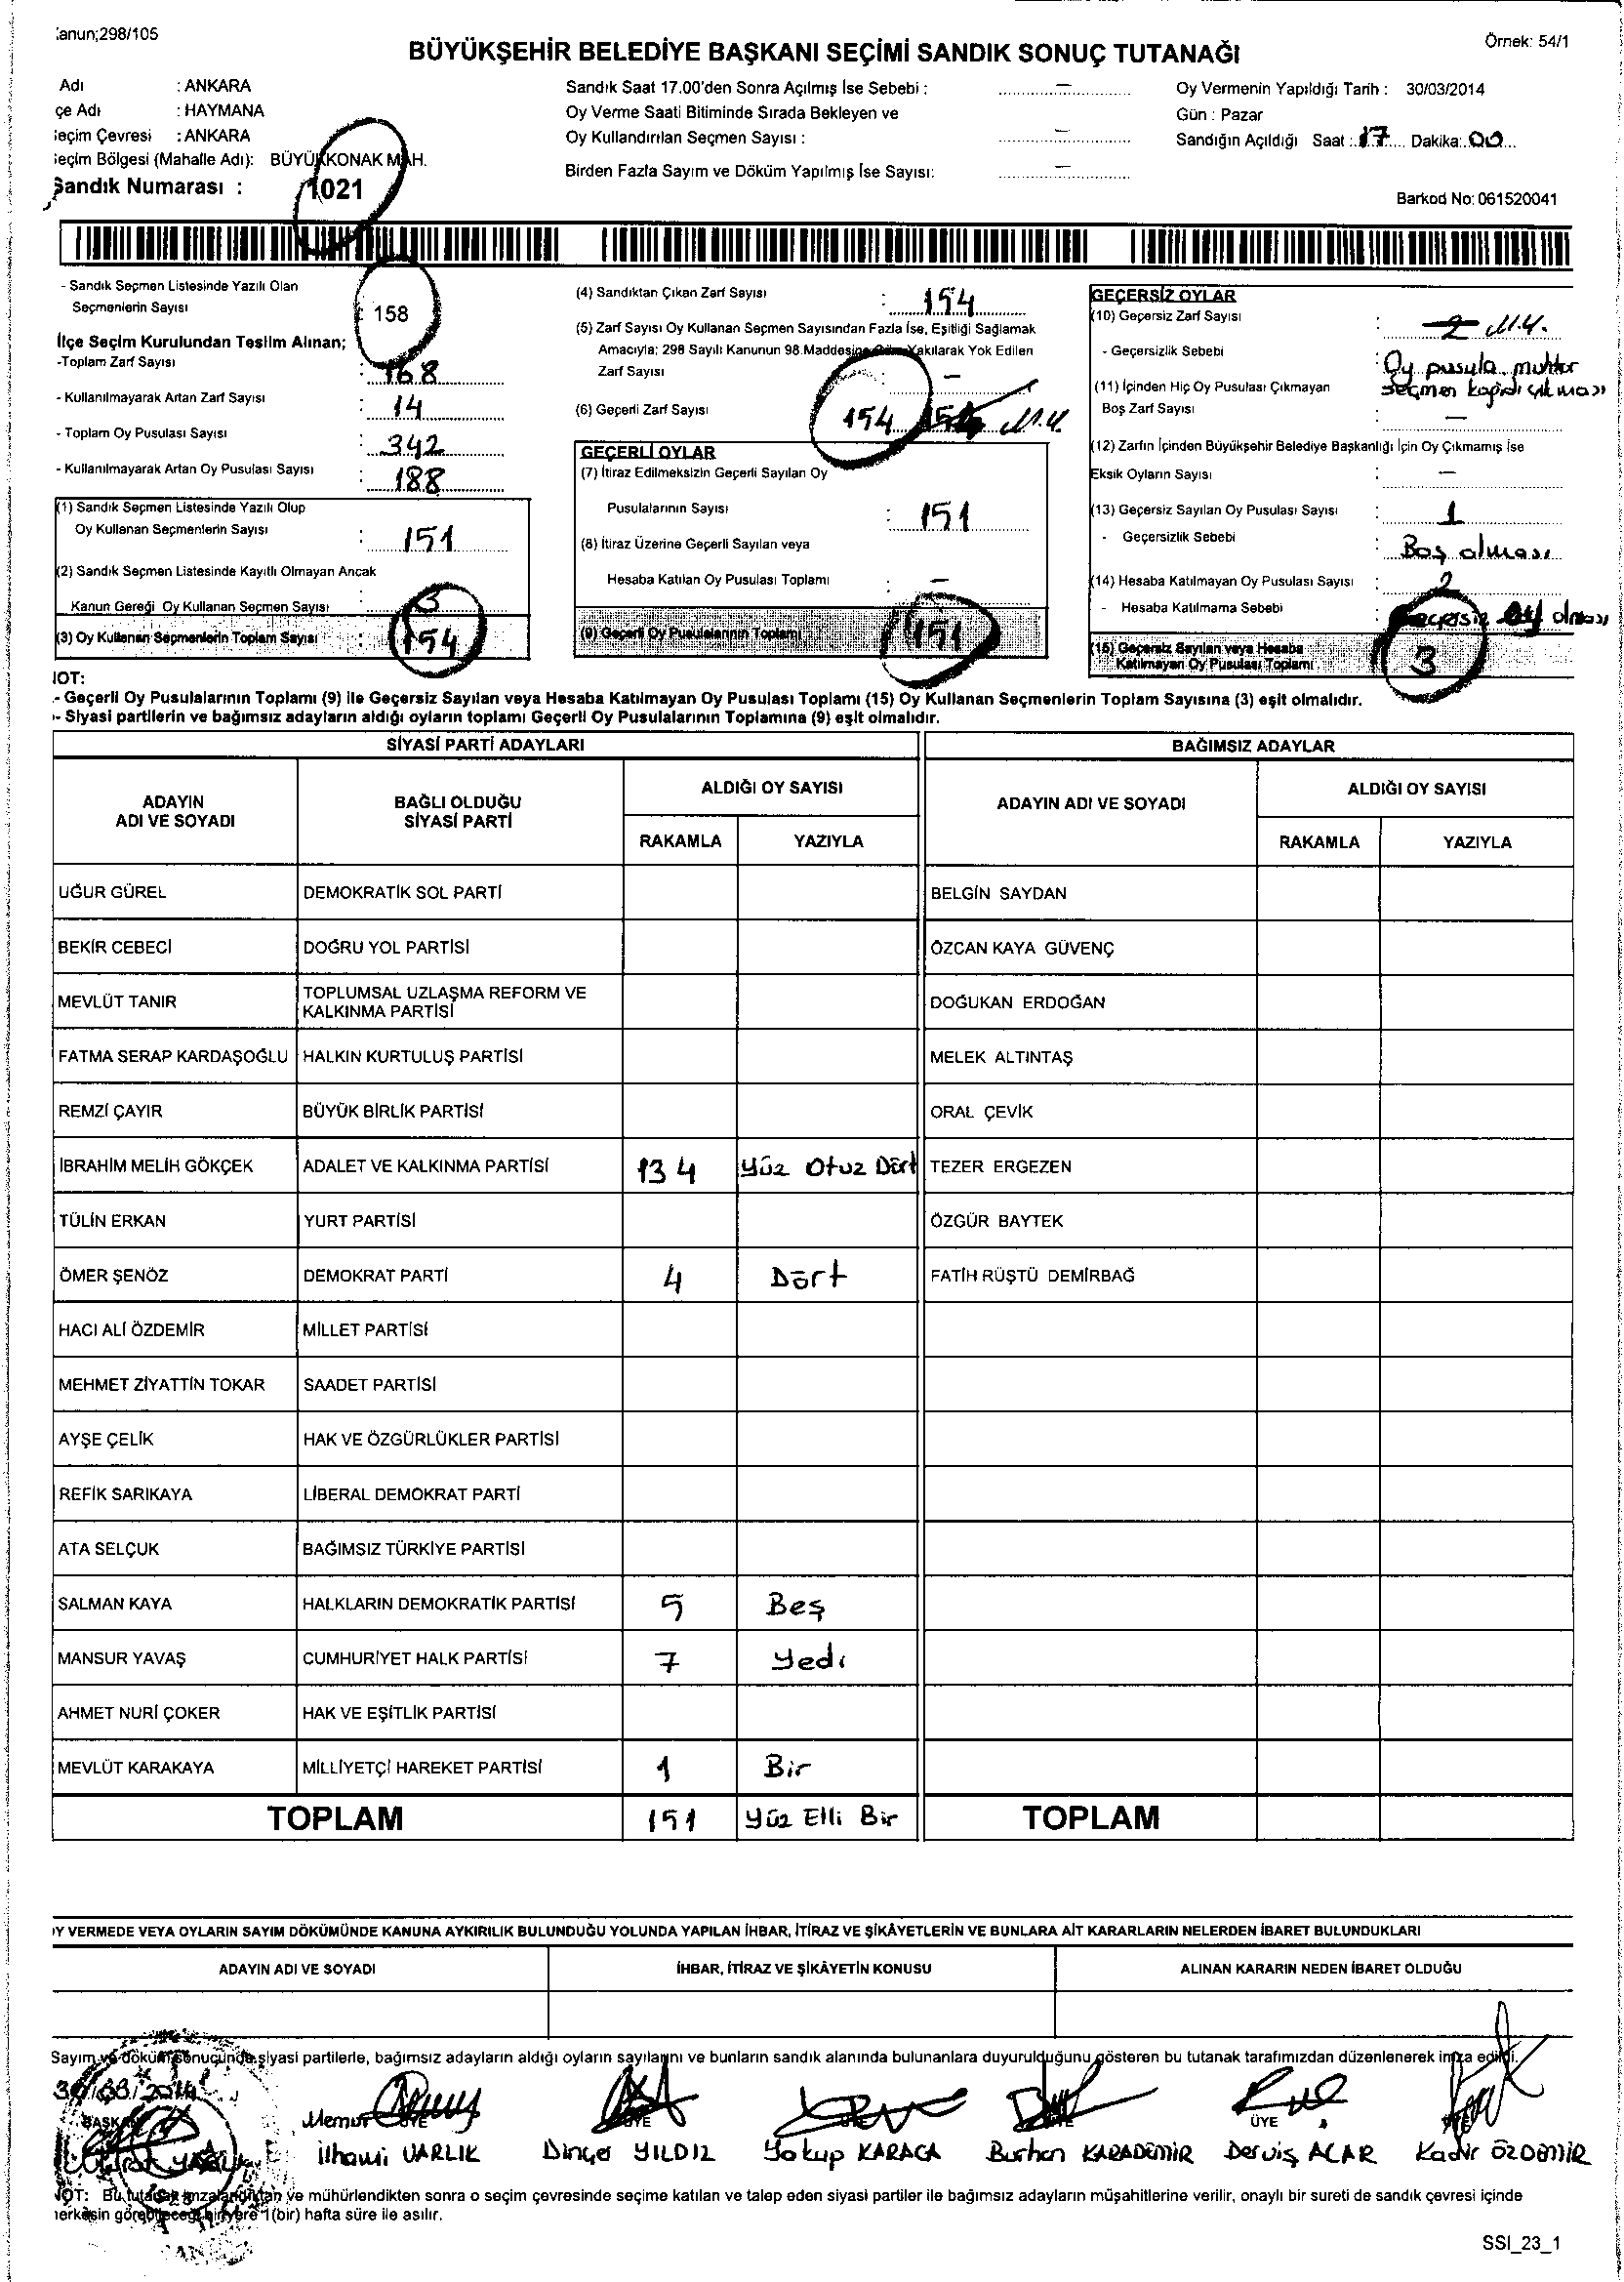 anun;298/105
Örnek: 54/1
BÜYÜKŞEHİR BELEDİYE BAŞKANI SEÇİMİ SANDIK SONUÇ TUTANAĞI
Adı : ANKARA
çe Adı : HAYMANA
eçim Çevresi : ANKARA
eçim Bölgesi (Mahalle Adı): BÜYÜKKONAK MAH.
Sandık Numarası : 1021
Sandık Saat 17.00'den Sonra Açılmış İse Sebebi : –
Oy Verme Saati Bitiminde Sırada Bekleyen ve
Oy Kullandırılan Seçmen Sayısı : –
Birden Fazla Sayım ve Döküm Yapılmış İse Sayısı: –
Oy Vermenin Yapıldığı Tarih : 30/03/2014
Gün : Pazar
Sandığın Açıldığı Saat : 17 Dakika: 00
Barkod No: 061520041
- Sandık Seçmen Listesinde Yazılı Olan
Seçmenlerin Sayısı : 158
İlçe Seçim Kurulundan Teslim Alınan;
-Toplam Zarf Sayısı : 168
- Kullanılmayarak Artan Zarf Sayısı : 14
- Toplam Oy Pusulası Sayısı : 342
- Kullanılmayarak Artan Oy Pusulası Sayısı : 188
(1) Sandık Seçmen Listesinde Yazılı Olup
Oy Kullanan Seçmenlerin Sayısı : 151
(2) Sandık Seçmen Listesinde Kayıtlı Olmayan Ancak
Kanun Gereği Oy Kullanan Seçmen Sayısı : 3
(3) Oy Kullanan Seçmenlerin Toplam Sayısı : 154
(4) Sandıktan Çıkan Zarf Sayısı : 154
(5) Zarf Sayısı Oy Kullanan Seçmen Sayısından Fazla İse, Eşitliği Sağlamak
Amacıyla; 298 Sayılı Kanunun 98.Maddesine Göre Yakılarak Yok Edilen
Zarf Sayısı : –
(6) Geçerli Zarf Sayısı : 154 154 M.Y.
GEÇERLİ OYLAR
(7) İtiraz Edilmeksizin Geçerli Sayılan Oy
Pusulalarının Sayısı : 151
(8) İtiraz Üzerine Geçerli Sayılan veya
Hesaba Katılan Oy Pusulası Toplamı : –
(9) Geçerli Oy Pusulalarının Toplamı 151
GEÇERSİZ OYLAR
(10) Geçersiz Zarf Sayısı : 2 M.Y.
- Geçersizlik Sebebi : Oy pusula muhtar
seçmen kağıdı çıkması
(11) İçinden Hiç Oy Pusulası Çıkmayan
Boş Zarf Sayısı : –
(12) Zarfın İçinden Büyükşehir Belediye Başkanlığı İçin Oy Çıkmamış İse
Eksik Oyların Sayısı : –
(13) Geçersiz Sayılan Oy Pusulası Sayısı : 1
- Geçersizlik Sebebi : Boş olması
(14) Hesaba Katılmayan Oy Pusulası Sayısı : 2
- Hesaba Katılmama Sebebi : Geçersiz oy olması
(15) Geçersiz Sayılan veya Hesaba
Katılmayan Oy Pusulası Toplamı : 3
NOT:
- Geçerli Oy Pusulalarının Toplamı (9) ile Geçersiz Sayılan veya Hesaba Katılmayan Oy Pusulası Toplamı (15) Oy Kullanan Seçmenlerin Toplam Sayısına (3) eşit olmalıdır.
- Siyasi partilerin ve bağımsız adayların aldığı oyların toplamı Geçerli Oy Pusulalarının Toplamına (9) eşit olmalıdır.
SİYASİ PARTİ ADAYLARI BAĞIMSIZ ADAYLAR
ADAYIN ADI VE SOYADI BAĞLI OLDUĞU SİYASİ PARTİ ALDIĞI OY SAYISI ADAYIN ADI VE SOYADI ALDIĞI OY SAYISI
RAKAMLA YAZIYLA RAKAMLA YAZIYLA
UĞUR GÜREL DEMOKRATİK SOL PARTİ BELGİN SAYDAN
BEKİR CEBECİ DOĞRU YOL PARTİSİ ÖZCAN KAYA GÜVENÇ
MEVLÜT TANIR TOPLUMSAL UZLAŞMA REFORM VE KALKINMA PARTİSİ DOĞUKAN ERDOĞAN
FATMA SERAP KARDAŞOĞLU HALKIN KURTULUŞ PARTİSİ MELEK ALTINTAŞ
REMZİ ÇAYIR BÜYÜK BİRLİK PARTİSİ ORAL ÇEVİK
İBRAHİM MELİH GÖKÇEK ADALET VE KALKINMA PARTİSİ 134 Yüz Otuz Dört TEZER ERGEZEN
TÜLİN ERKAN YURT PARTİSİ ÖZGÜR BAYTEK
ÖMER ŞENÖZ DEMOKRAT PARTİ 4 Dört FATİH RÜŞTÜ DEMİRBAĞ
HACI ALİ ÖZDEMİR MİLLET PARTİSİ
MEHMET ZİYATTİN TOKAR SAADET PARTİSİ
AYŞE ÇELİK HAK VE ÖZGÜRLÜKLER PARTİSİ
REFİK SARIKAYA LİBERAL DEMOKRAT PARTİ
ATA SELÇUK BAĞIMSIZ TÜRKİYE PARTİSİ
SALMAN KAYA HALKLARIN DEMOKRATİK PARTİSİ 5 Beş
MANSUR YAVAŞ CUMHURİYET HALK PARTİSİ 7 Yedi
AHMET NURİ ÇOKER HAK VE EŞİTLİK PARTİSİ
MEVLÜT KARAKAYA MİLLİYETÇİ HAREKET PARTİSİ 1 Bir
TOPLAM 151 Yüz Elli Bir TOPLAM
OY VERMEDE VEYA OYLARIN SAYIM DÖKÜMÜNDE KANUNA AYKIRILIK BULUNDUĞU YOLUNDA YAPILAN İHBAR, İTİRAZ VE ŞİKÂYETLERİN VE BUNLARA AİT KARARLARIN NELERDEN İBARET BULUNDUKLARI
ADAYIN ADI VE SOYADI İHBAR, İTİRAZ VE ŞİKÂYETİN KONUSU ALINAN KARARIN NEDEN İBARET OLDUĞU
Sayım ve döküm sonucunda siyasi partilerle, bağımsız adayların aldığı oyların sayılarını ve bunların sandık alanında bulunanlara duyurulduğunu gösteren bu tutanak tarafımızdan düzenlenerek imza edildi.
30/03/2014
BAŞKAN Memur ÜYE ÜYE ÜYE ÜYE ÜYE
İlhami VARLIK Dinçer YILDIZ Yakup KARACA Burhan KARADEMİR Derviş ACAR Kadir ÖZDEMİR
NOT: Bu tutanak imzalandıktan ve mühürlendikten sonra o seçim çevresinde seçime katılan ve talep eden siyasi partiler ile bağımsız adayların müşahitlerine verilir, onaylı bir sureti de sandık çevresi içinde
herkesin görebileceği bir yere 1(bir) hafta süre ile asılır.
SSI_23_1